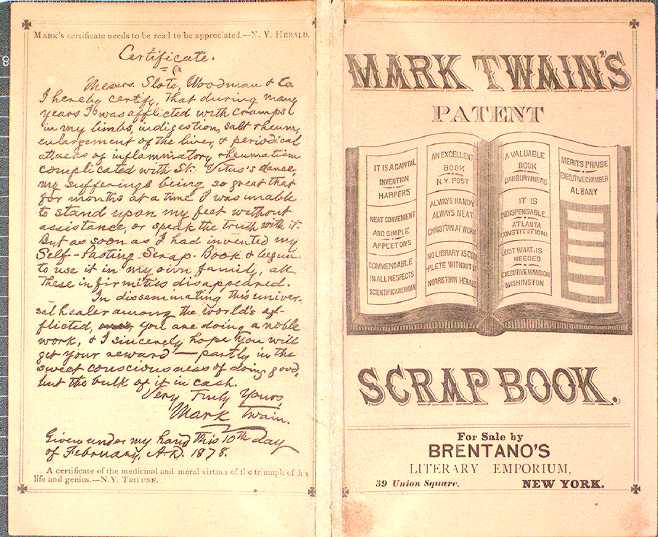 MARK'S certificate needs to be read to be appreciated.—N. Y. HERALD.
Certificate.
Messrs. Slote, Woodman & Co
I hereby certify, that during many
years I was afflicted with cramps
in my limbs, indigestion, salt rheum,
enlargement of the liver, & periodical
attacks of inflammatory rheumatism
complicated with St. Vitus's dance,
my sufferings being so great that
for months at a time I was unable
to stand upon my feet without
assistance, or speak the truth with it.
But as soon as I had invented my
Self-Pasting Scrap-Book & begun
to use it in my own family, all
these infirmities disappeared.
In disseminating this univer-
sal healer among the world's af-
flicted, you are doing a noble
work, & I sincerely hope you will
get your reward—partly in the
sweet consciousness of doing good,
but the bulk of it in cash.
Very Truly Yours,
Mark Twain.
Given under my hand this 10th day
of February, A.D. 1878.
A certificate of the medicinal and moral virtues of the triumph of his
life and genius.—N.Y. TRIBUNE.
MARK TWAIN'S
PATENT
IT IS A CAPITAL
INVENTION
HARPERS
NEAT CONVENIENT
AND SIMPLE
APPLETONS
COMMENDABLE
IN ALL RESPECTS
SCIENTIFIC AMERICAN
AN EXCELLENT
BOOK
N.Y. POST
ALWAYS HANDY
ALWAYS NEAT
CHRISTIAN AT WORK
NO LIBRARY IS COM
PLETE WITHOUT IT
NORRISTOWN HERALD
A VALUABLE
BOOK
DANBURY NEWS
IT IS
INDISPENSABLE
ATLANTA
CONSTITUTION
JUST WHAT IS
NEEDED
EXECUTIVE MANSION
WASHINGTON
MERITS PRAISE
EXECUTIVE CHAMBER
ALBANY
SCRAP BOOK.
For Sale by
BRENTANO'S
LITERARY EMPORIUM,
39 Union Square. NEW YORK.
8